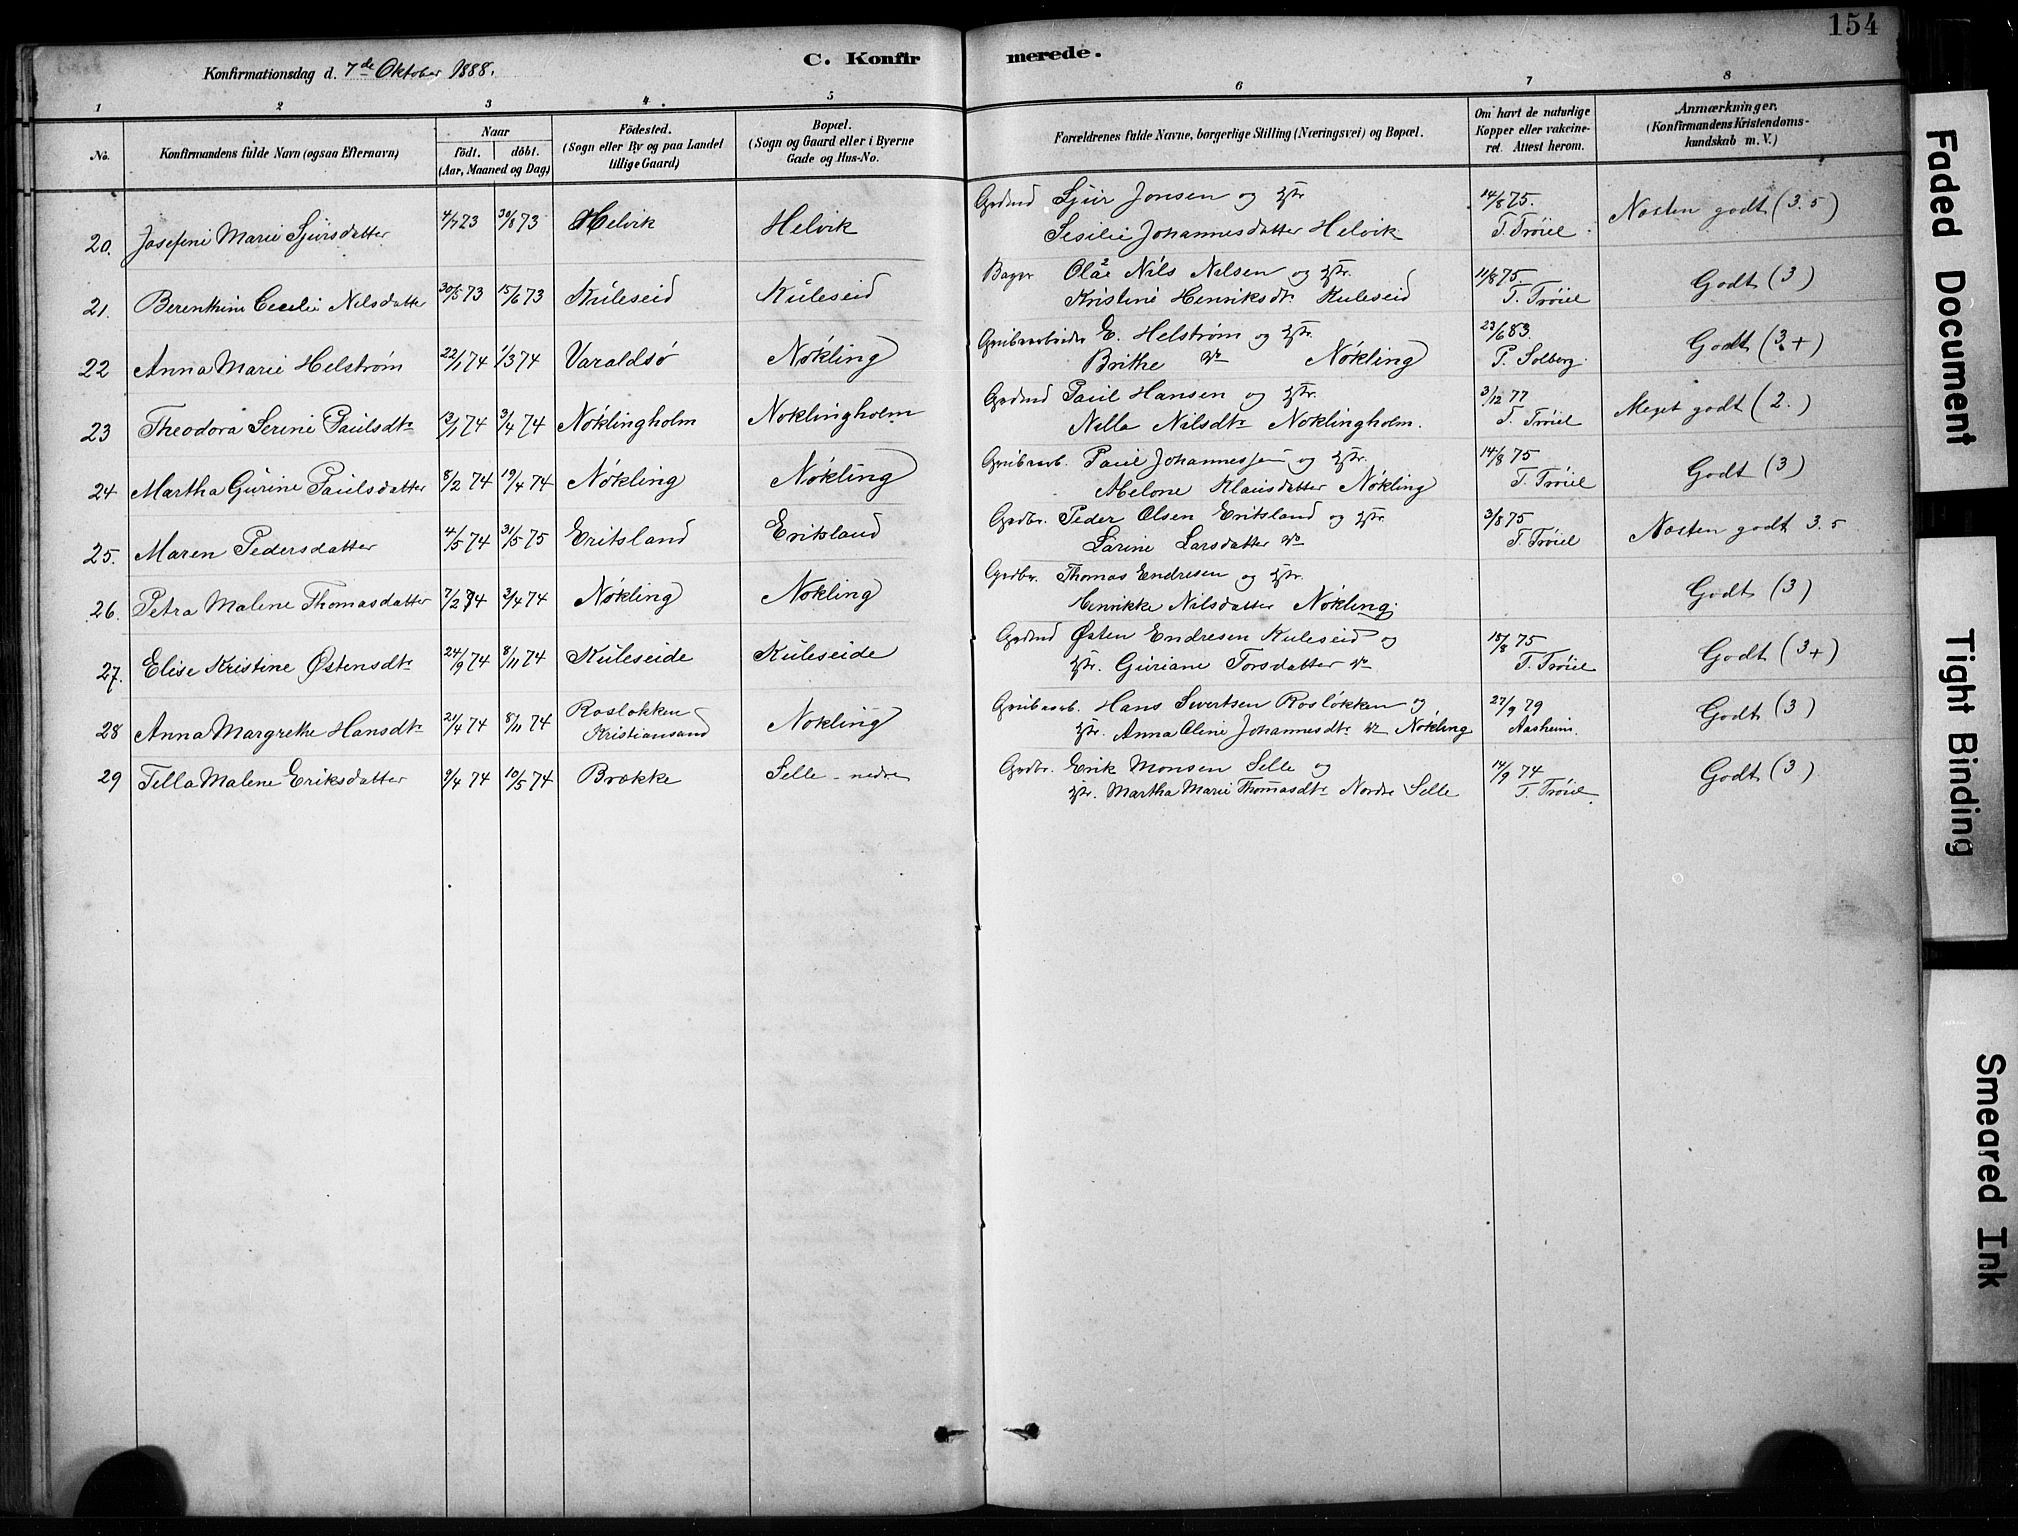 154
Konfirmationsdag d. 7de Oktober 1888.
C. Konfirmerede.
1 2 3 4 5 6 7 8
No. Konfirmandens fulde Navn (ogsaa Efternavn) Naar født. døbt. (Aar, Maaned og Dag) Födested. (Sogn eller By og paa Landet tillige Gaard) Bopæl. (Sogn og Gaard eller i Byerne Gade og Hus-No. Forældrenes fulde Navne, borgerlige Stilling (Næringsvei) og Bopæl. Om havt de naturlige Kopper eller vakcineret. Attest herom. Anmærkninger. (Konfirmandens Kristendomskundskab m. V.)
20. Josefine Marie Sjursdatter 4/7 73 30/8 73 Helvik Helvik Grdmd Sjur Jonsen og Hstr. 14/8 75. Næsten godt (3.5)
Sesilie Johannesdatter Helvik T. Trøiel
21. Berenthine Cecilie Nilsdatter 30/5 73 15/6 73 Kuleseid Kuleseid Olai Nils Nilsen og Hstr. 11/8 75 Godt (3)
Kristine Henriksdt. Kuleseid T. Trøiel
22 Anna Marie Helstrøm 22/1 74 1/3 74 Varaldsø Nøkling Grubearbeider E. Helstrøm og Hstr. 23/6 83. Godt (3+)
Brithe do Nøkling P. Solberg.
23 Theodora Serine Paulsdtr 13/1 74 3/4 74 Nøklingholm Nøklingholm Grdmd Paul Hansen og Hstr. 3/12 77 Meget godt (2.)
Nilla Nilsdtr Nøklingholm. T. Trøiel
24 Martha Gurine Paulsdatter 8/2 74 19/4 74 Nøkling Nøkling Grubearb. Paul Johannessen og Hstr. 14/8 75 Godt (3)
Abelone Klausdatter Nøkling T. Trøiel
25. Maren Pedersdatter 4/5 74 31/5 75 Eritsland Eritsland Grdbr. Peder Olsen Eritsland og Hstr. 3/8 75 Næsten godt 3.5
Larine Larsdatter do T. Trøiel
26. Petra Malene Thomasdatter 7/2 74 3/4 74 Nøkling Nøkling Grdbr. Thomas Endresen og Hstr. Godt (3)
Henrikke Nilsdatter Nøkling.
27. Elise Kristine Østensdtr 24/9 74 8/11 74 Kuleseide Kuleseide Grdmd Østen Endresen Kuleseid og 18/8 75 Godt (3+)
Hstr. Guriane Torsdatter do T. Trøiel
28 Anna Margrethe Hansdtr 21/4 74 8/11 74 Rosløkken Kristiansand Nøkling Grubearb. Hans Sivertsen Rosløkken og 27/9 79 Godt (3)
Hstr. Anna Oline Johannesdtr do Nøkling Aasheim.
29 Tella Malene Eriksdatter 2/4 74 10/5 74 Brække Selle - nedre Grdbr. Erik Monsen Selle og 14/9 74 Godt (3)
Hstr. Martha Marie Thomasdtr Nordre Selle T. Trøiel.
Faded Document
Tight Binding
Smeared Ink